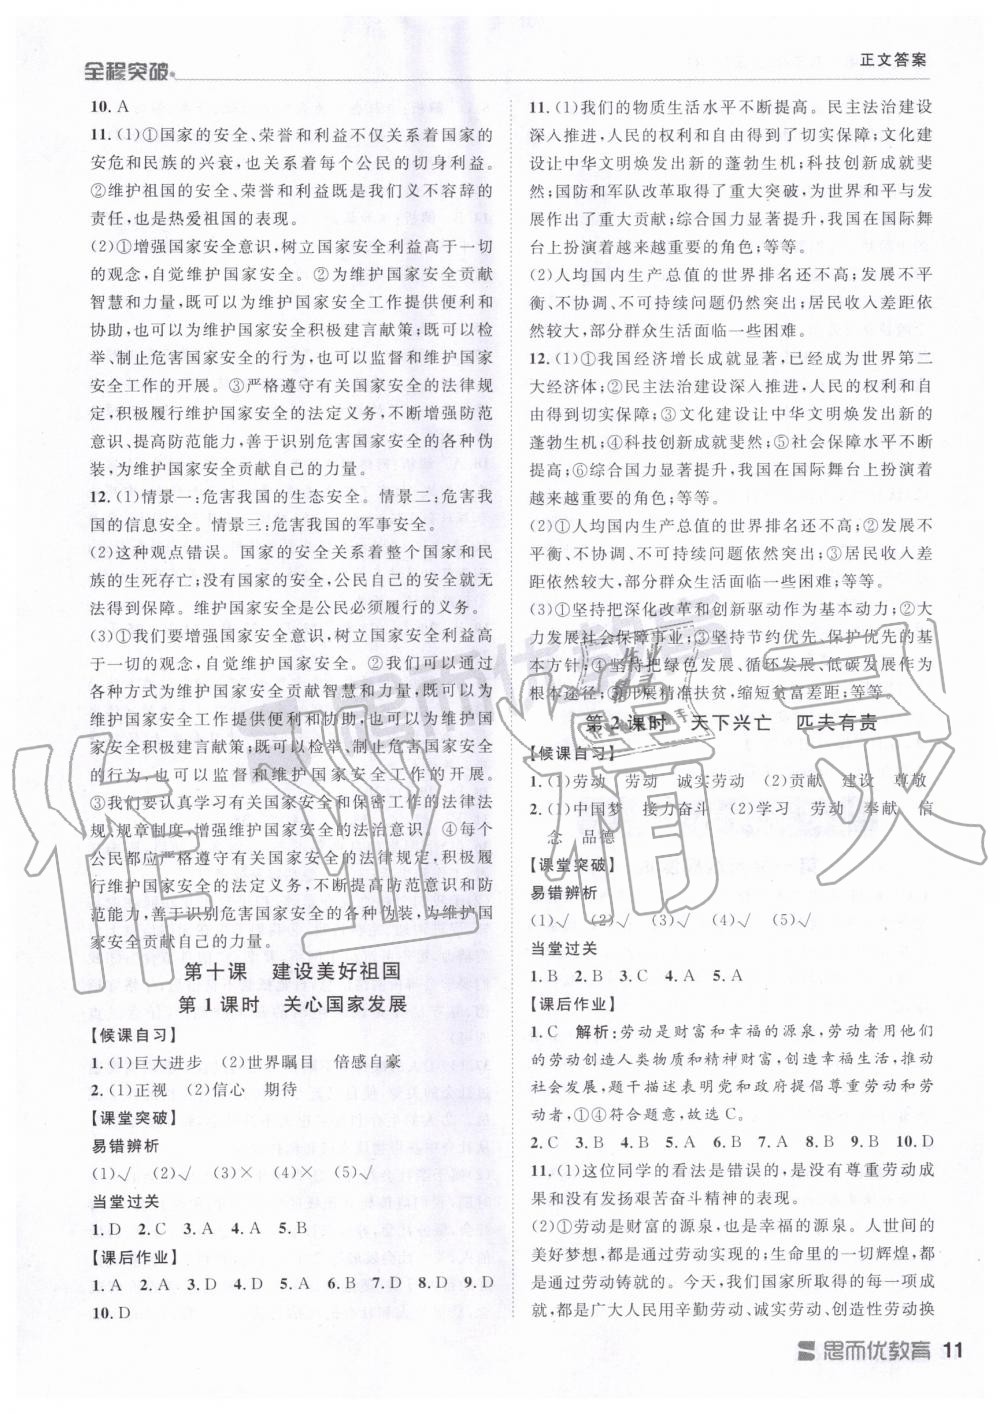 全程突破
正文答案
10. A
11. (1)①国家的安全、荣誉和利益不仅关系着国家的
安危和民族的兴衰,也关系着每个公民的切身利益。
②维护祖国的安全、荣誉和利益既是我们义不容辞的
责任,也是热爱祖国的表现。
(2)①增强国家安全意识,树立国家安全利益高于一切
的观念,自觉维护国家安全。②为维护国家安全贡献
智慧和力量,既可以为维护国家安全工作提供便利和
协助,也可以为维护国家安全积极建言献策;既可以检
举、制止危害国家安全的行为,也可以监督和维护国家
安全工作的开展。③严格遵守有关国家安全的法律规
定,积极履行维护国家安全的法定义务,不断增强防范
意识、提高防范能力,善于识别危害国家安全的各种伪
装,为维护国家安全贡献自己的力量。
12. (1)情景一:危害我国的生态安全。情景二:危害我
国的信息安全。情景三:危害我国的军事安全。
(2)这种观点错误。国家的安全关系着整个国家和民
族的生死存亡;没有国家的安全,公民自己的安全就无
法得到保障。维护国家安全是公民必须履行的义务。
(3)①我们要增强国家安全意识,树立国家安全利益高
于一切的观念,自觉维护国家安全。②我们可以通过
各种方式为维护国家安全贡献智慧和力量,既可以为
维护国家安全工作提供便利和协助,也可以为维护国家
安全积极建言献策;既可以检举、制止危害国家安全
的行为,也可以监督和维护国家安全工作的开展。
③我们要认真学习有关国家安全和保密工作的法律法
规、规章制度,增强维护国家安全的法治意识。④每个
公民都应严格遵守有关国家安全的法律规定,积极履
行维护国家安全的法定义务,不断提高防范意识和防
范能力,善于识别危害国家安全的各种伪装,为维护国
家安全贡献自己的力量。
第十课 建设美好祖国
第1课时 关心国家发展
【候课自习】
1. (1)巨大进步 (2)世界瞩目 倍感自豪
2. (1)正视 (2)信心 期待
【课堂突破】
易错辨析
(1)√ (2)√ (3)× (4)× (5)√
当堂过关
1. D 2. C 3. A 4. A 5. B
【课后作业】
1. A 2. A 3. D 4. D 5. A 6. B 7. D 8. D 9. D
10. D
11. (1)我们的物质生活水平不断提高。民主法治建设
深入推进,人民的权利和自由得到了切实保障;文化建
设让中华文明焕发出新的蓬勃生机;科技创新成就斐
然;国防和军队改革取得了重大突破,为世界和平与发
展作出了重大贡献;综合国力显著提升,我国在国际舞
台上扮演着越来越重要的角色;等等。
(2)人均国内生产总值的世界排名还不高;发展不平
衡、不协调、不可持续问题仍然突出;居民收入差距依
然较大,部分群众生活面临一些困难。
12. (1)①我国经济增长成就显著,已经成为世界第二
大经济体;②民主法治建设深入推进,人民的权利和自
由得到切实保障;③文化建设让中华文明焕发出新的
蓬勃生机;④科技创新成就斐然;⑤社会保障水平不断
提高;⑥综合国力显著提升,我国在国际舞台上扮演着
越来越重要的角色;等等。
(2)①人均国内生产总值的世界排名还不高;②发展不
平衡、不协调、不可持续问题依然突出;③居民收入差
距依然较大,部分群众生活面临一些困难;等等。
(3)①坚持把深化改革和创新驱动作为基本动力;②大
力发展社会保障事业;③坚持节约优先、保护优先的基
本方针;④坚持把绿色发展、循环发展、低碳发展作为
根本途径;⑤开展精准扶贫,缩短贫富差距;等等。
第2课时 天下兴亡 匹夫有责
【候课自习】
1. (1)劳动 劳动 诚实劳动 (2)贡献 建设 尊敬
2. (1)中国梦 接力奋斗 (2)学习 劳动 奉献 信
念 品德
【课堂突破】
易错辨析
(1)√ (2)√ (3)√ (4)√ (5)√
当堂过关
1. B 2. B 3. C 4. A 5. A
【课后作业】
1. C 解析:劳动是财富和幸福的源泉,劳动者用他们
的劳动创造人类物质和精神财富,创造幸福生活,推动
社会发展,题干描述表明党和政府提倡尊重劳动和劳
动者,①④符合题意,故选C。
2. C 3. B 4. B 5. C 6. B 7. A 8. B 9. B 10. D
11. (1)这位同学的看法是错误的,是没有尊重劳动成
果和没有发扬艰苦奋斗精神的表现。
(2)①劳动是财富的源泉,也是幸福的源泉。人世间的
美好梦想,都是通过劳动实现的;生命里的一切辉煌,都
是通过劳动铸就的。今天,我们国家所取得的每一项成
就,都是广大人民用辛勤劳动、诚实劳动、创造性劳动换
思而优教育 11
思而优教育
作业精灵